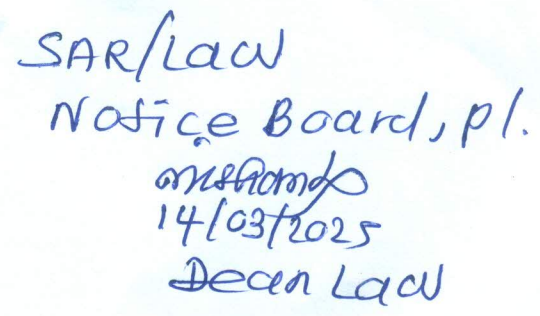 SAR/Law
Notice Board, pl.
14/03/2025
Dean Law